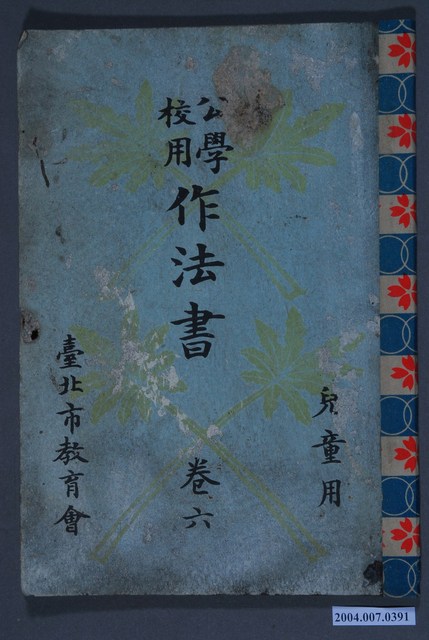 兒童用
公學
校用
作法書
卷六
臺北市教育會
2004.007.0391